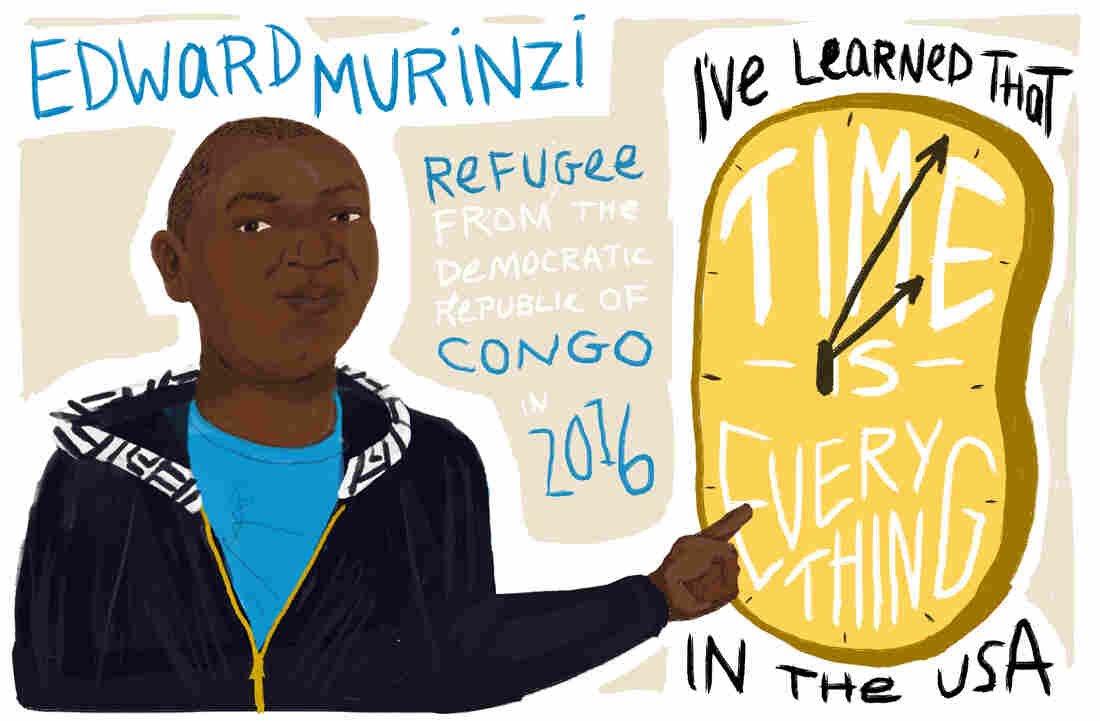 EDWARD MURINZI
REFUGEE
FROM THE
DEMOCRATIC
REPUBLIC OF
CONGO
IN
2016
I'VE LEARNED THAT
TIME
IS
EVERY
THING
IN THE USA